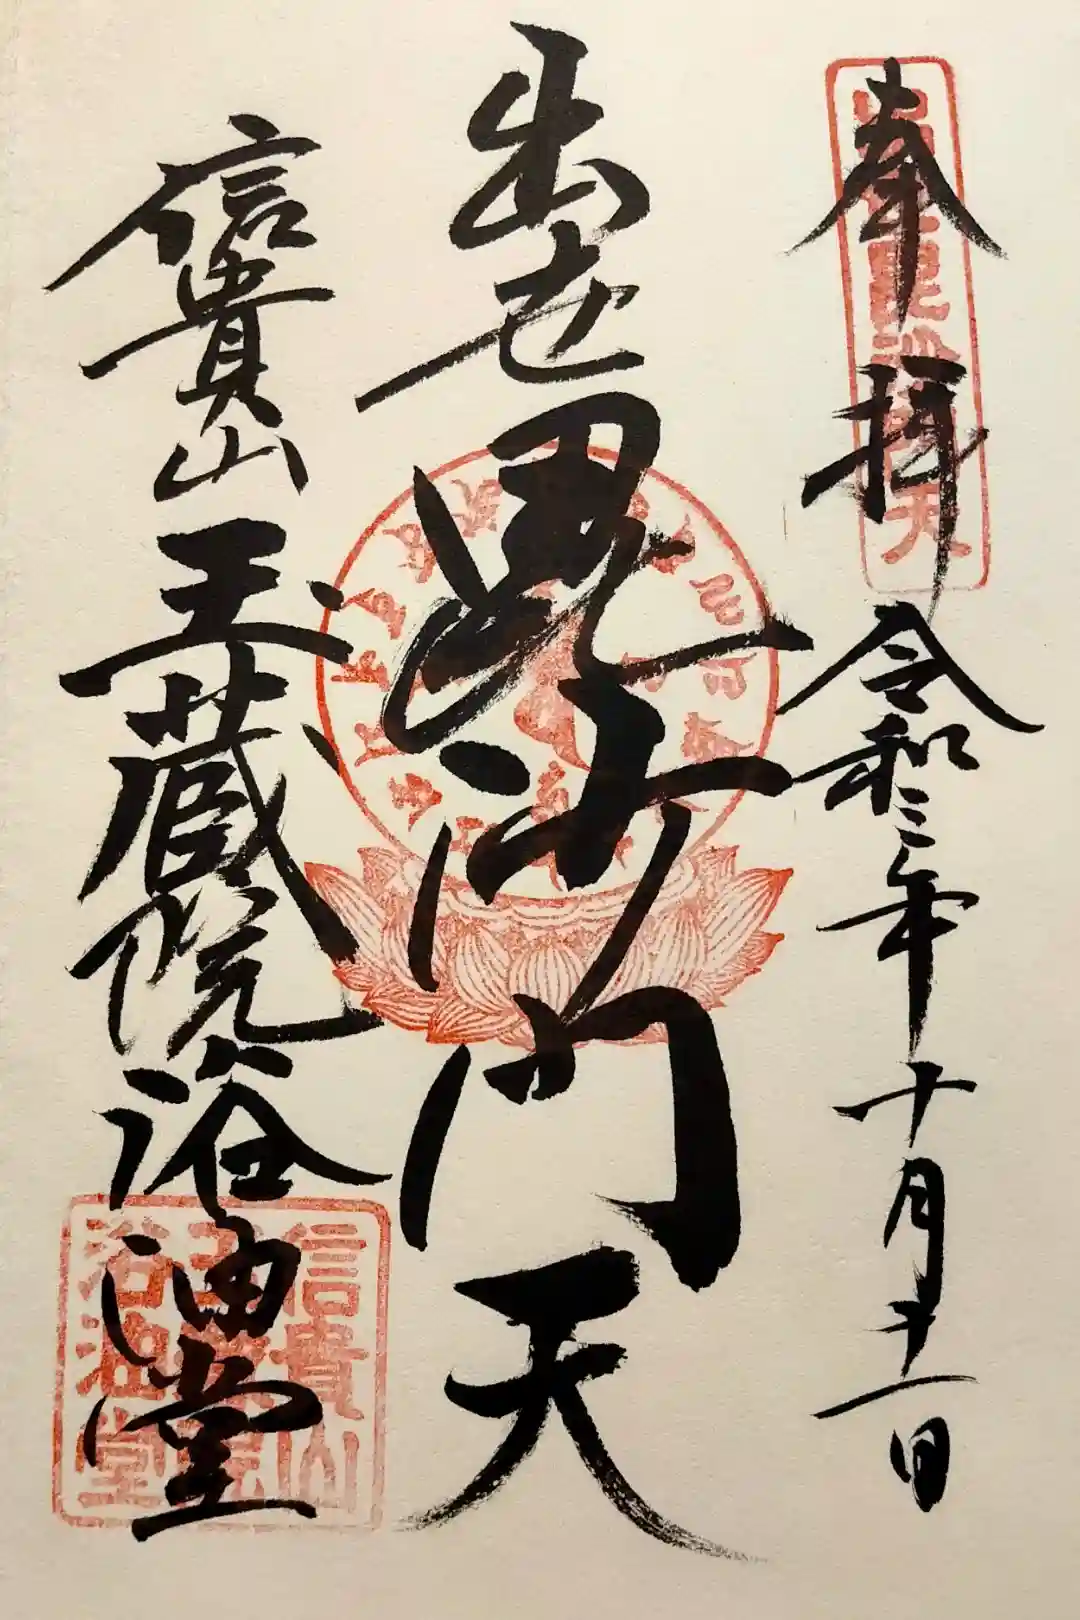 奉拝
令和三年十月十一日
出世毘沙門天
信貴山玉蔵院浴油堂
信貴山
玉蔵院
浴油堂